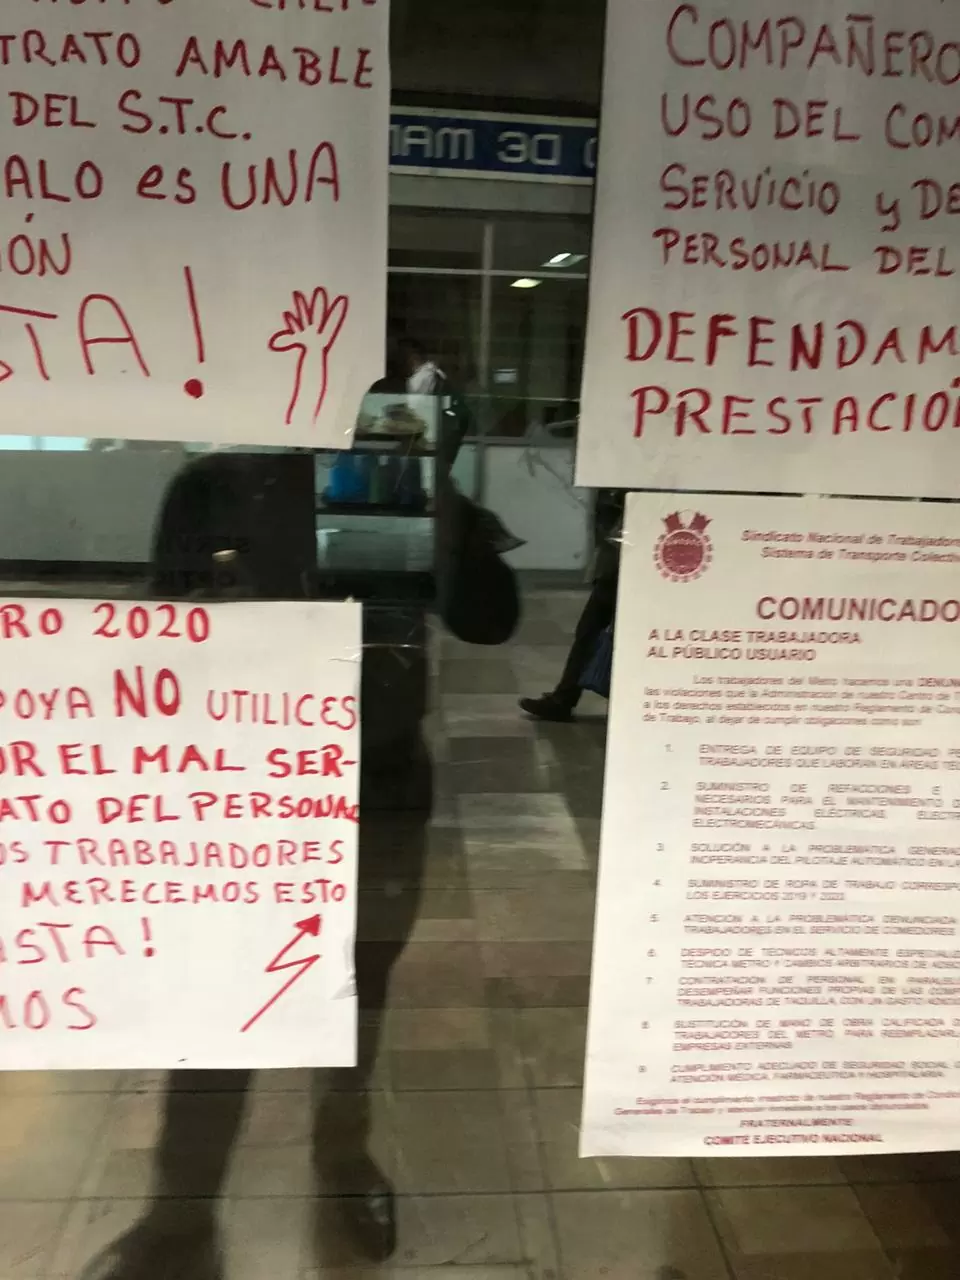 TRATO AMABLE
DEL S.T.C.
ALO es UNA
IÓN
STA!
COMPAÑERO
USO DEL COM
SERVICIO y DE
PERSONAL DEL
DEFENDAM
PRESTACIÓ
DE MAN
RO 2020
POYA NO UTILICES
OR EL MAL SER-
ATO DEL PERSONAL
OS TRABAJADORES
MERECEMOS ESTO
ASTA!
MOS
Sindicato Nacional de Trabajadore
Sistema de Transporte Colectiv
COMUNICADO
A LA CLASE TRABAJADORA
AL PÚBLICO USUARIO
Los trabajadores del Metro hacemos una DENUN
las violaciones que la Administración de nuestro Centro de T
a los derechos establecidos en nuestro Reglamento de Con
de Trabajo, al dejar de cumplir obligaciones como son:
1. ENTREGA DE EQUIPO DE SEGURIDAD PE
TRABAJADORES QUE LABORAN EN ÁREAS TÉC
2. SUMINISTRO DE REFACCIONES E
NECESARIOS PARA EL MANTENIMIENTO D
INSTALACIONES ELÉCTRICAS, ELECTR
ELECTROMECÁNICAS.
3. SOLUCIÓN A LA PROBLEMÁTICA GENERAD
INOPERANCIA DEL PILOTAJE AUTOMÁTICO EN LA
4. SUMINISTRO DE ROPA DE TRABAJO CORRESPO
LOS EJERCICIOS 2019 Y 2020.
5. ATENCIÓN A LA PROBLEMÁTICA DENUNCIADA
TRABAJADORES EN EL SERVICIO DE COMEDORES
6. DESPIDO DE TÉCNICOS ALTAMENTE ESPECIALIZ
TÉCNICA METRO Y CAMBIOS ARBITRARIOS DE ADSC
7. CONTRATACIÓN DE PERSONAL EN PARALEL
DESEMPEÑAR FUNCIONES PROPIAS DE LAS COM
TRABAJADORAS DE TAQUILLA, CON UN GASTO ADICIO
8. SUSTITUCIÓN DE MANO DE OBRA CALIFICADA D
TRABAJADORES DEL METRO PARA REEMPLAZARL
EMPRESAS EXTERNAS.
9. CUMPLIMIENTO ADECUADO DE SEGURIDAD SOCIAL
ATENCIÓN MÉDICA, FARMACÉUTICA Y HOSPITALARIA.
Exigimos el cumplimiento irrestricto de nuestro Reglamento de Condic
Generales de Trabajo y atención inmediata a los rubros denunciados.
FRATERNALMENTE
COMITÉ EJECUTIVO NACIONAL